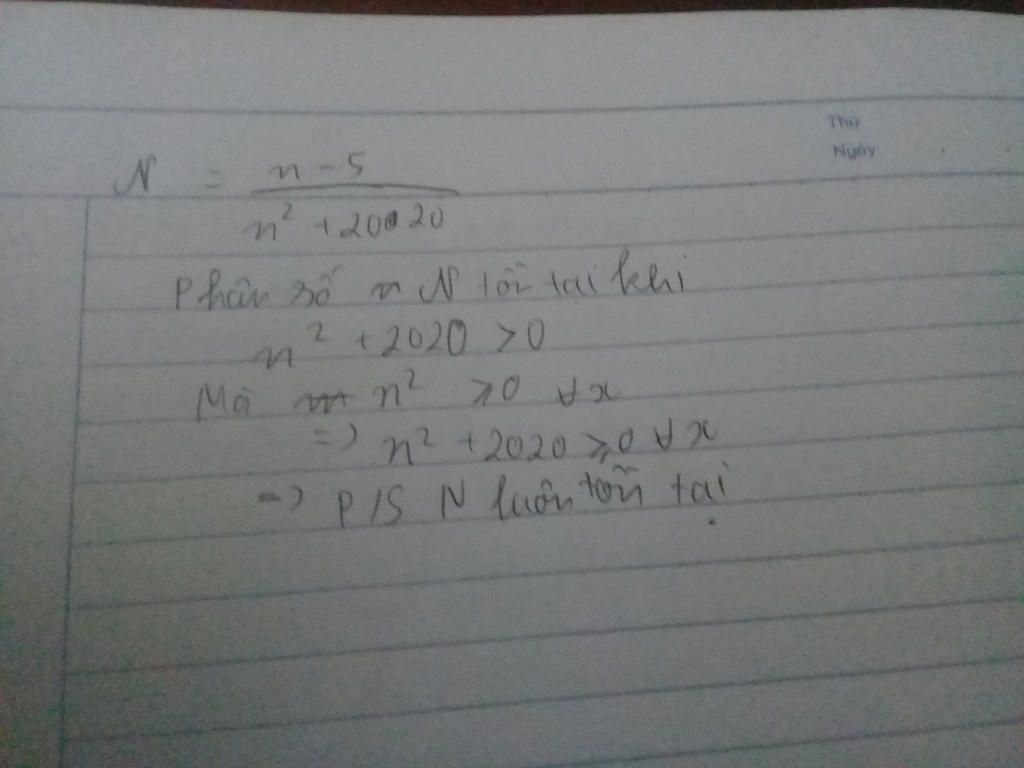 Thứ
Ngày
N = \frac{n-5}{n^2+20020}
Phân số N tồn tại khi
n² + 2020 > 0
Mà n² ≥ 0 ∀x
=> n² + 2020 ≥ 0 ∀x
=> P/S N luôn tồn tại